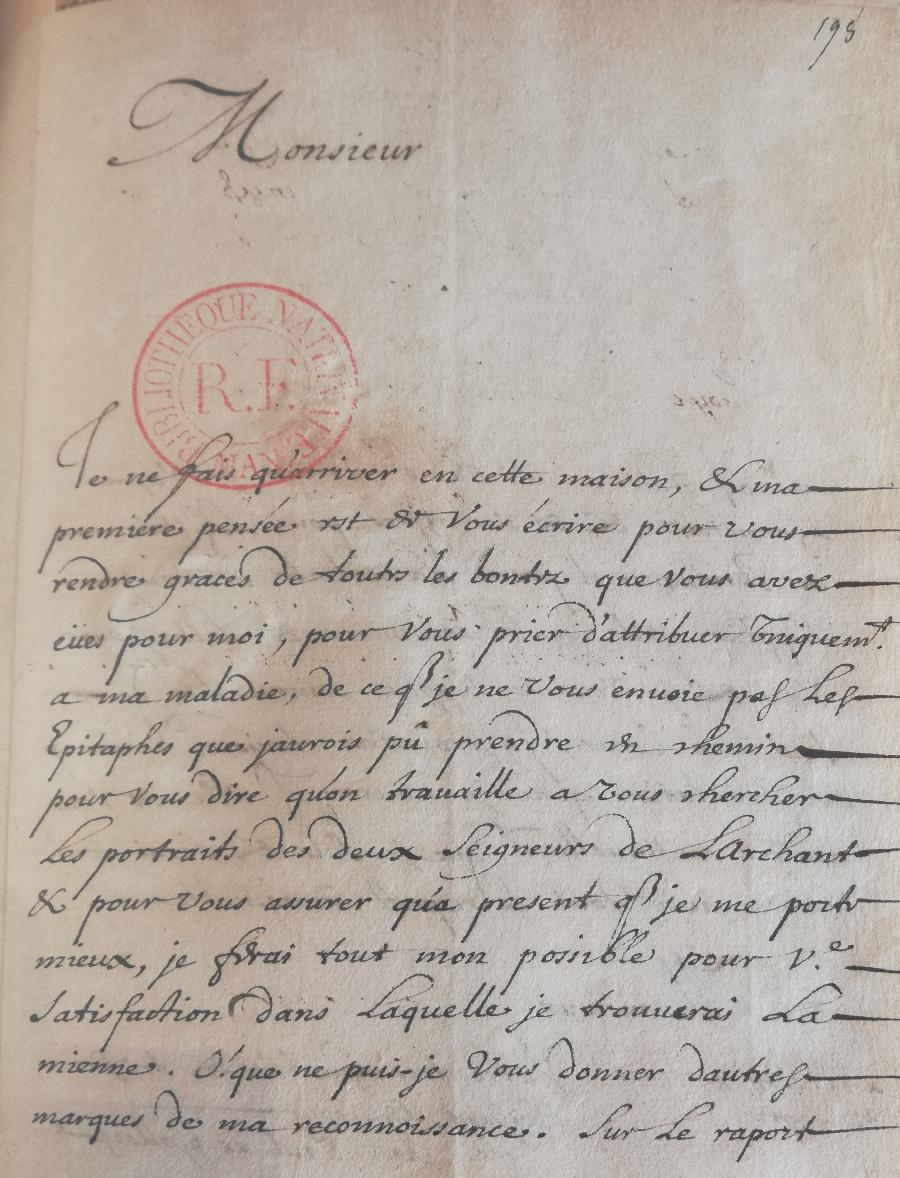 198
Monsieur
BIBLIOTHEQUE NATIONALE MANUSCRITS
R.F.
Je ne fais qu'arriver en cette maison, & ma
premiere pensée est de Vous écrire pour vous
rendre graces de toutes les bontez que Vous avez
eües pour moi, pour Vous prier d'attribuer Uniquemt.
a ma maladie, de ce q̃ je ne Vous envoie pas Les
Epitaphes que jaurois pû prendre en chemin
pour Vous dire qu'on travaille a Vous chercher
Les portraits des deux Seigneurs de LArchant
& pour Vous assurer qu'a present q̃ je me porte
mieux, je ferai tout mon possible pour v.e
Satisfaction dans Laquelle je trouverai La
mienne. O! que ne puis-je Vous donner dautres
marques de ma reconnoissance. Sur Le raport